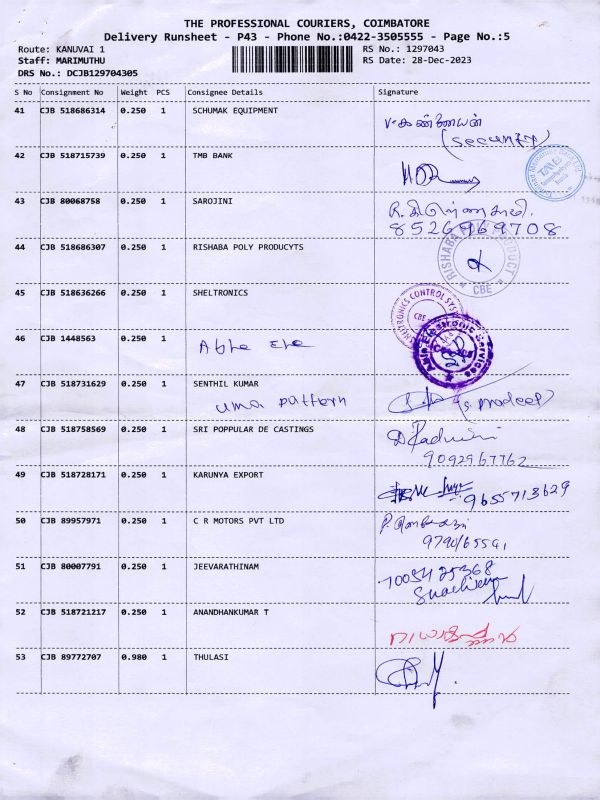 THE PROFESSIONAL COURIERS, COIMBATORE
Delivery Runsheet - P43 - Phone No.:0422-3505555 - Page No.:5
Route: KANUVAI 1
RS No.: 1297043
Staff: MARIMUTHU
RS Date: 28-Dec-2023
DRS No.: DCJB129704305
S No Consignment No Weight PCS Consignee Details Signature
41 CJB 518686314 0.250 1 SCHUMAK EQUIPMENT
(security)
42 CJB 518715739 0.250 1 TMB BANK
43 CJB 80068758 0.250 1 SAROJINI
8526969708
44 CJB 518686307 0.250 1 RISHABA POLY PRODUCYTS
RISHABA PRODUCT CBE
45 CJB 518636266 0.250 1 SHELTRONICS
CONTROL CBE
46 CJB 1448563 0.250 1
Electronic Services
47 CJB 518731629 0.250 1 SENTHIL KUMAR
uma pattern (s. Pradeep)
48 CJB 518758569 0.250 1 SRI POPPULAR DE CASTINGS
9092967762
49 CJB 518728171 0.250 1 KARUNYA EXPORT
9655713629
50 CJB 89957971 0.250 1 C R MOTORS PVT LTD
51 CJB 80007791 0.250 1 JEEVARATHINAM
52 CJB 518721217 0.250 1 ANANDHANKUMAR T
53 CJB 89772707 0.980 1 THULASI